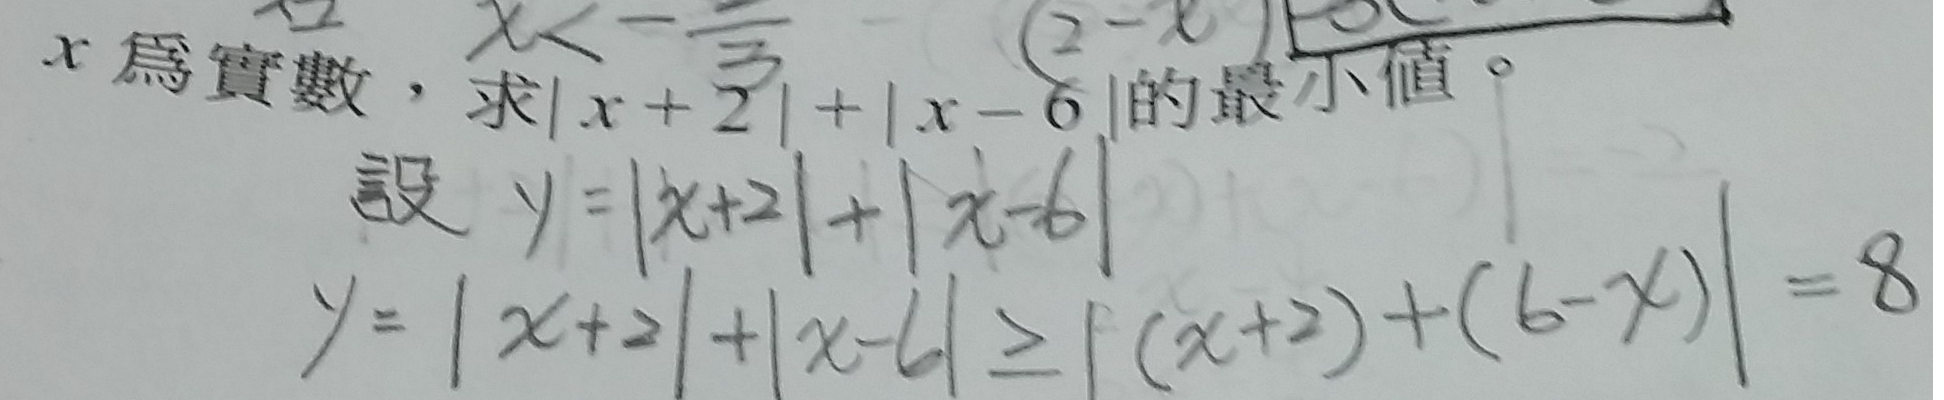 x < -
(2-x)
x 爲實數，求|x+2|+|x-6|的最小值。
設 y=|x+2|+|x-6|
y=|x+2|+|x-6|≥|(x+2)+(6-x)|=8